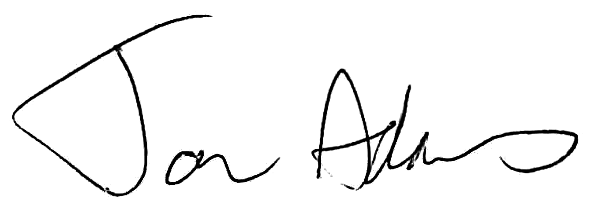 Jon Adams